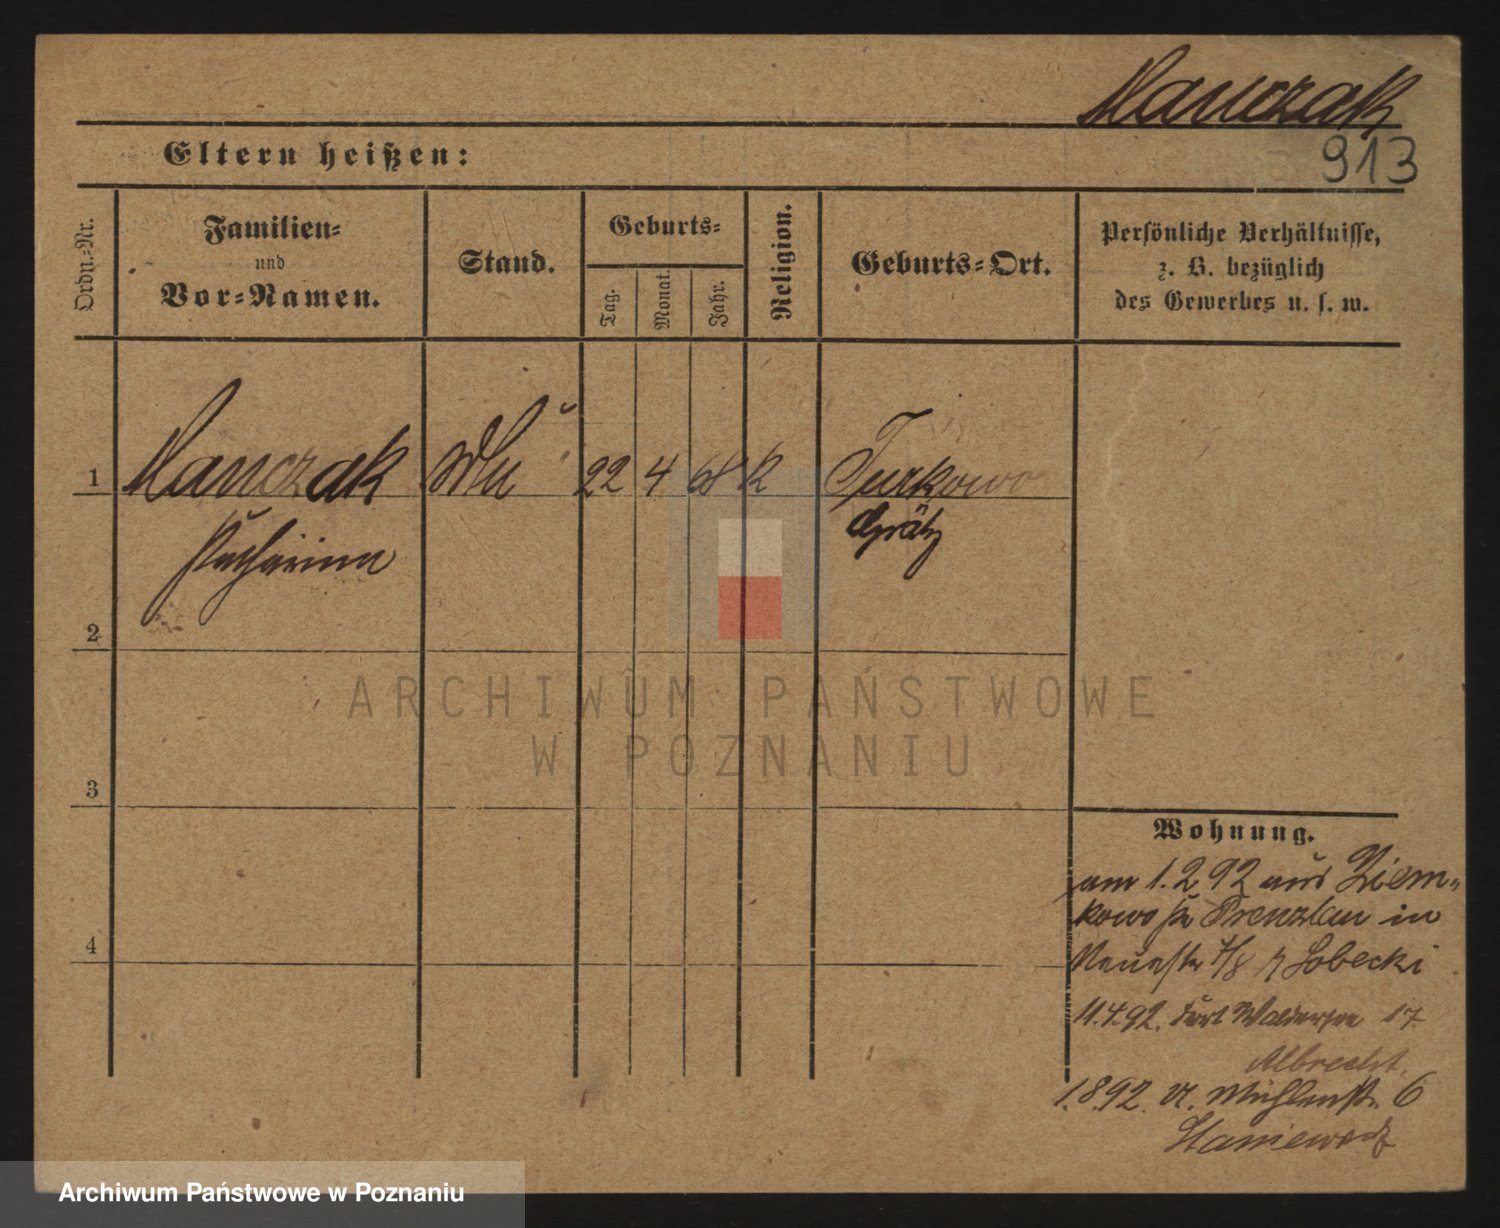 Manczak
913
Eltern heißen:
Ordn.-Nr.
Familien-
und
Vor-Namen.
Stand.
Geburts-
Tag.
Monat.
Jahr.
Religion.
Geburts-Ort.
Persönliche Verhältnisse,
z. B. bezüglich
des Gewerbes u. s. w.
1 Manczak 22 4 68 K Turkowo
Katharina Grätz
2
ARCHIWUM PAŃSTWOWE
W POZNANIU
3
Wohnung.
am 1.2 92 aus Ziem-
kowo Prenzlau in
Neuestr 7/8 Sobecki
4
11.4.92. Fort Waldersee 17
Albrecht.
1.8.92. Mühlenstr. 6
Archiwum Państwowe w Poznaniu